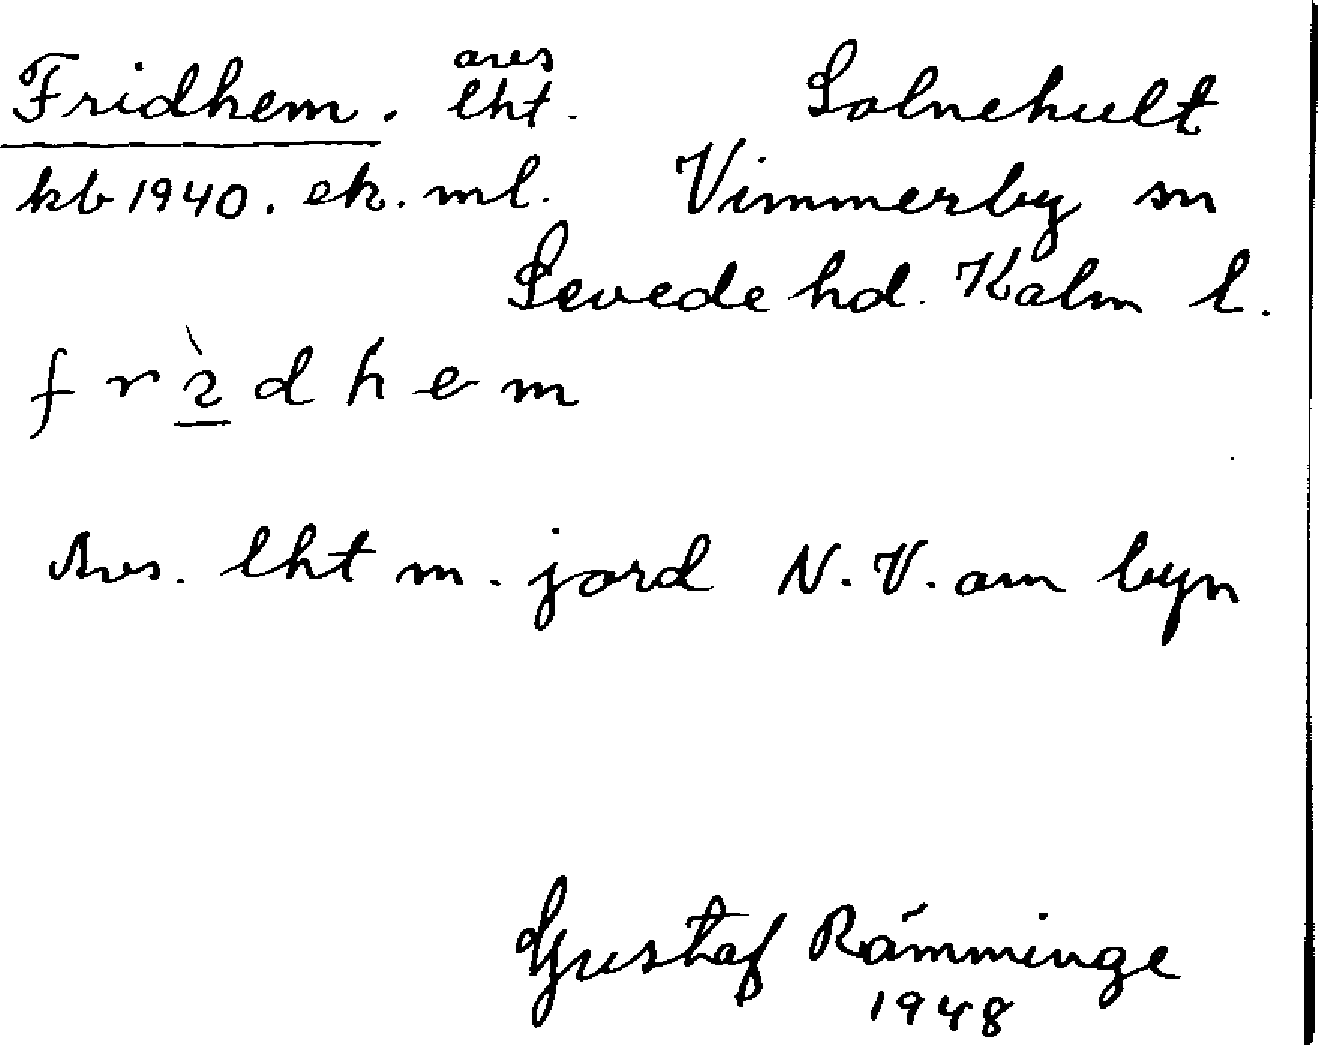 Fridhem. avs lht. Solnehult
kb 1940. ek. ml. Vimmerby sn
Sevede hd. Kalm l.
f r ɩ̀ d h e m
Avs. lht m. jord N.V. om byn
Gustaf Rämminge
1948